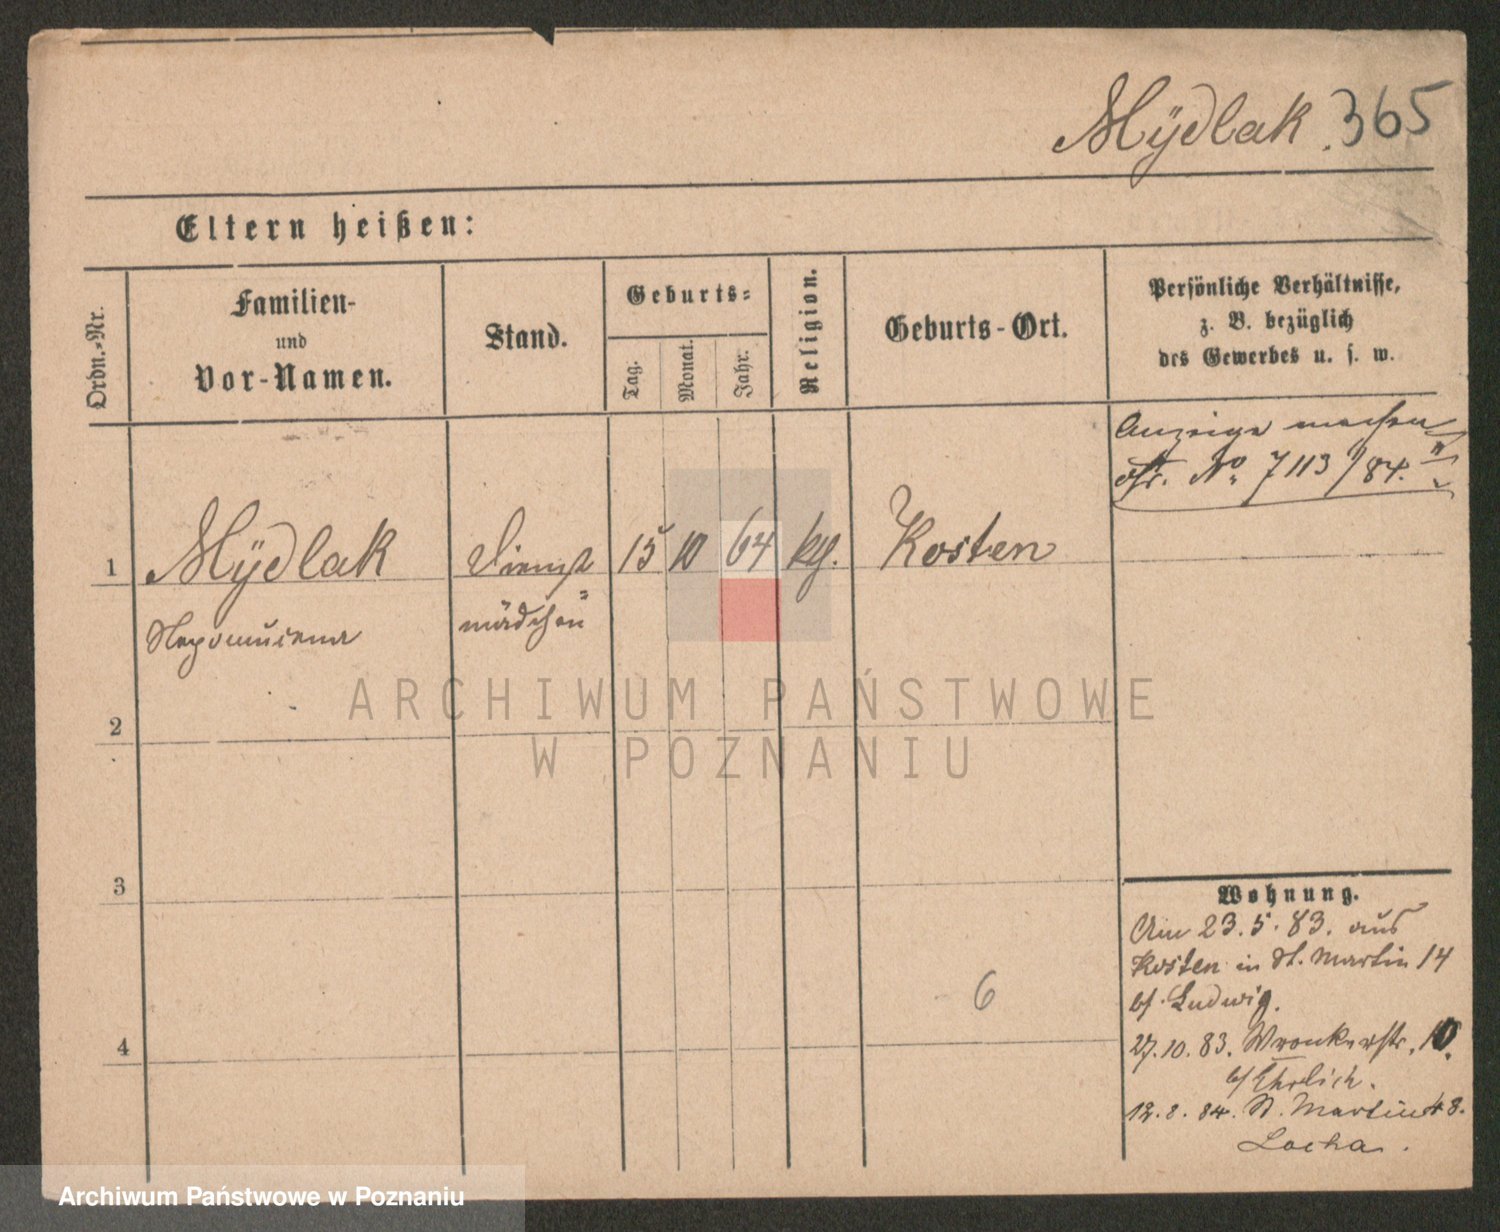 Mÿdlak 365
Eltern heißen:
Ordn.-Nr.
Familien-
und
Vor-Namen.
Stand.
Geburts-
Tag.
Monat.
Jahr.
Religion.
Geburts-Ort.
Persönliche Verhältnisse,
z. B. bezüglich
des Gewerbes u. s. w.
Anzeige machen
No. 7113/84.
1 Mÿdlak Dienst 15 10 64 kth. Kosten
Nepomucena mädchen
2
3
4
6
Wohnung.
Am 23.5.83. aus
Kosten in St. Martin 14
b/ Ludwig.
27.10.83. Wronkerstr. 10.
b/ Ehrlich.
12.8.84. St. Martin 48.
Locha.
ARCHIWUM PAŃSTWOWE
W POZNANIU
Archiwum Państwowe w Poznaniu